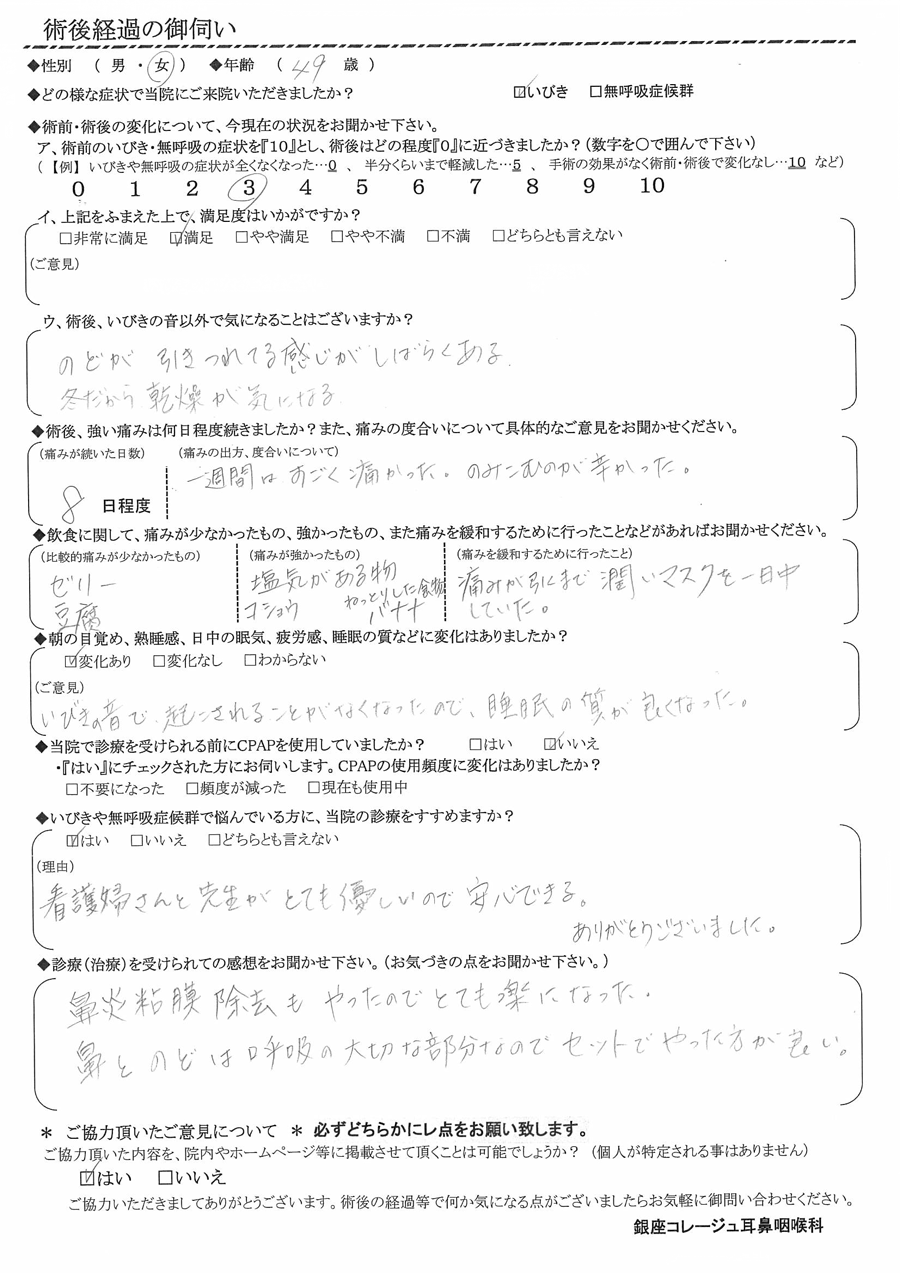 術後経過の御伺い
◆性別 （ 男 ・ 女 ） ◆年齢 （ 49 歳 ）
◆どの様な症状で当院にご来院いただきましたか？ ☑いびき □無呼吸症候群
◆術前・術後の変化について、今現在の状況をお聞かせ下さい。
ア、術前のいびき・無呼吸の症状を『10』とし、術後はどの程度『0』に近づきましたか？（数字を〇で囲んで下さい）
（【例】いびきや無呼吸の症状が全くなくなった…0 、 半分くらいまで軽減した…5 、 手術の効果がなく術前・術後で変化なし…10 など）
0 1 2 3 4 5 6 7 8 9 10
イ、上記をふまえた上で、満足度はいかがですか？
□非常に満足 ☑満足 □やや満足 □やや不満 □不満 □どちらとも言えない
（ご意見）
ウ、術後、いびきの音以外で気になることはございますか？
のどが 引きつれてる感じがしばらくある。
冬だから 乾燥が気になる。
◆術後、強い痛みは何日程度続きましたか？また、痛みの度合いについて具体的なご意見をお聞かせください。
（痛みが続いた日数） （痛みの出方、度合いについて）
一週間は すごく痛かった。のみこむのが辛かった。
8 日程度
◆飲食に関して、痛みが少なかったもの、強かったもの、また痛みを緩和するために行ったことなどがあればお聞かせください。
（比較的痛みが少なかったもの） （痛みが強かったもの） （痛みを緩和するために行ったこと）
ゼリー 塩気がある物 痛みが引くまで 潤いマスクを一日中
豆腐 コショウ ねっとりした食物 バナナ していた。
◆朝の目覚め、熟睡感、日中の眠気、疲労感、睡眠の質などに変化はありましたか？
☑変化あり □変化なし □わからない
（ご意見）
いびきの音で、起こされることがなくなったので、睡眠の質が良くなった。
◆当院で診療を受けられる前にCPAPを使用していましたか？ □はい ☑いいえ
・『はい』にチェックされた方にお伺いします。CPAPの使用頻度に変化はありましたか？
□不要になった □頻度が減った □現在も使用中
◆いびきや無呼吸症候群で悩んでいる方に、当院の診療をすすめますか？
☑はい □いいえ □どちらとも言えない
（理由）
看護婦さんと先生がとても優しいので安心できる。
ありがとうございました。
◆診療（治療）を受けられての感想をお聞かせ下さい。（お気づきの点をお聞かせ下さい。）
鼻炎粘膜除去も やったのでとても楽になった。
鼻とのどは呼吸の大切な部分なのでセットでやった方が良い。
＊ ご協力頂いたご意見について ＊ 必ずどちらかにレ点をお願い致します。
ご協力頂いた内容を、院内やホームページ等に掲載させて頂くことは可能でしょうか？（個人が特定される事はありません）
☑はい □いいえ
ご協力いただきましてありがとうございます。術後の経過等で何か気になる点がございましたらお気軽に御問い合わせください。
銀座コレージュ耳鼻咽喉科